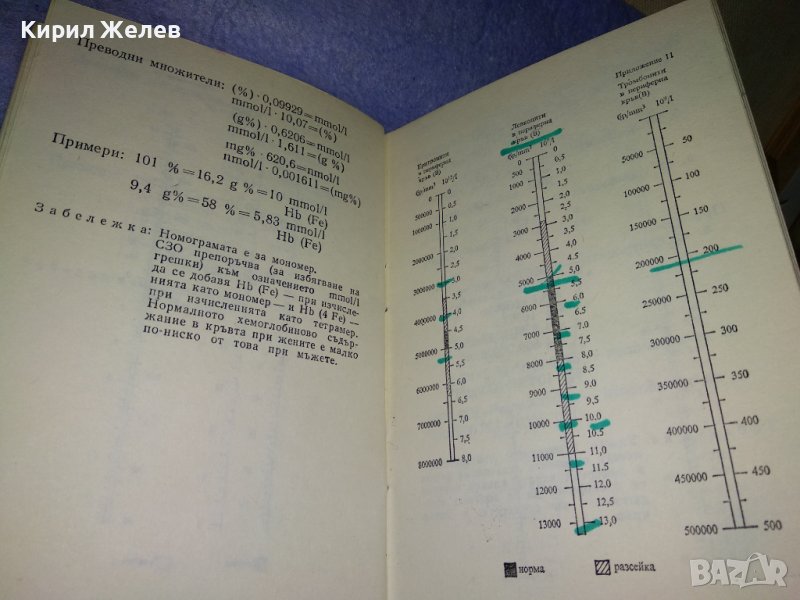 Кирил Желев
Преводни множители: (%) · 0,09929=mmol/l
mmol/l · 10,07=(%)
(g%) · 0,6206=mmol/l
mmol/l · 1,611=(g %)
mg% · 620,6=nmol/l
nmol/l · 0,001611=(mg%)
Примери: 101 %=16,2 g %=10 mmol/l
Hb (Fe)
9,4 g%=58 %=5,83 mmol/l
Hb (Fe)
Забележка: Номограмата е за мономер.
СЗО препоръчва (за избягване на
грешки) към означението mmol/l
да се добавя Hb (Fe) — при изчисле-
нията като мономер — и Hb (4 Fe) —
при изчисленията като тетрамер.
Нормалното хемоглобиново съдър-
жание в кръвта при жените е малко
по-ниско от това при мъжете.
Приложение 11
Еритроцити
в периферна
кръв (B)
бр/mm³
0
500000
1000000
2000000
3000000
4000000
5000000
6000000
7000000
8000000
0
0,5
1,0
1,5
2,0
2,5
3,0
3,5
4,0
4,5
5,0
5,5
6,0
6,5
7,0
7,5
8,0
Левкоцити
в периферна
кръв (B)
бр/mm³ 10⁹/l
0
500
1000
2000
3000
4000
5000
6000
7000
8000
9000
10000
11000
12000
13000
0
0,5
1,0
1,5
2,0
2,5
3,0
3,5
4,0
4,5
5,0
5,5
6,0
6,5
7,0
7,5
8,0
8,5
9,0
9,5
10,0
10,5
11,0
11,5
12,0
12,5
13,0
Тромбоцити
в периферна
кръв(B)
бр/mm³ 10⁹/l
50000
100000
150000
200000
250000
300000
350000
400000
450000
500000
50
100
150
200
250
300
350
400
450
500
норма
разсейка
BAZAR